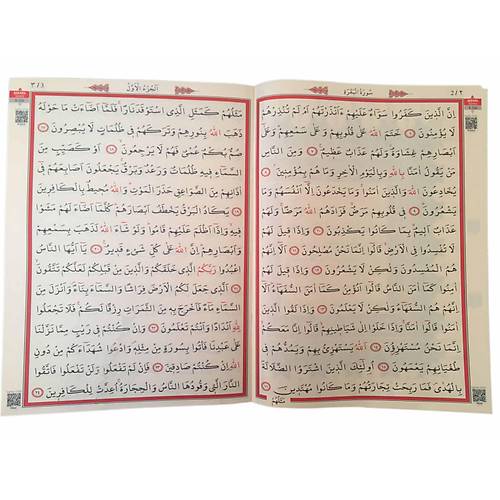 سُورَةُ الْبَقَرَةِ
اِنَّ الَّذٖينَ كَفَرُوا سَوَٓاءٌ عَلَيْهِمْ ءَاَنْذَرْتَهُمْ اَمْ لَمْ تُنْذِرْهُمْ
لَا يُؤْمِنُونَ ٦ خَتَمَ اللّٰهُ عَلٰى قُلُوبِهِمْ وَعَلٰى سَمْعِهِمْ وَعَلٰٓى
اَبْصَارِهِمْ غِشَاوَةٌ وَلَهُمْ عَذَابٌ عَظٖيمٌ ٧ وَمِنَ النَّاسِ
مَنْ يَقُولُ اٰمَنَّا بِاللّٰهِ وَبِالْيَوْمِ الْاٰخِرِ وَمَا هُمْ بِمُؤْمِنٖينَ ٨
يُخَادِعُونَ اللّٰهَ وَالَّذٖينَ اٰمَنُوا وَمَا يَخْدَعُونَ اِلَّٓا اَنْفُسَهُمْ وَمَا
يَشْعُرُونَ ٩ فٖى قُلُوبِهِمْ مَرَضٌ فَزَادَهُمُ اللّٰهُ مَرَضًا وَلَهُمْ
عَذَابٌ اَلٖيمٌ بِمَا كَانُوا يَكْذِبُونَ ١٠ وَاِذَا قٖيلَ لَهُمْ
لَا تُفْسِدُوا فِى الْاَرْضِ قَالُٓوا اِنَّمَا نَحْنُ مُصْلِحُونَ ١١ اَلَٓا اِنَّهُمْ
هُمُ الْمُفْسِدُونَ وَلٰكِنْ لَا يَشْعُرُونَ ١٢ وَاِذَا قٖيلَ لَهُمْ
اٰمِنُوا كَمَٓا اٰمَنَ النَّاسُ قَالُٓوا اَنُؤْمِنُ كَمَٓا اٰمَنَ السُّفَهَٓاءُ اَلَٓا
اِنَّهُمْ هُمُ السُّفَهَٓاءُ وَلٰكِنْ لَا يَعْلَمُونَ ١٣ وَاِذَا لَقُوا الَّذٖينَ
اٰمَنُوا قَالُٓوا اٰمَنَّا وَاِذَا خَلَوْا اِلٰى شَيَاطٖينِهِمْ قَالُٓوا اِنَّا مَعَكُمْ
اِنَّمَا نَحْنُ مُسْتَهْزِؤُنَ ١٤ اَللّٰهُ يَسْتَهْزِئُ بِهِمْ وَيَمُدُّهُمْ فٖى
طُغْيَانِهِمْ يَعْمَهُونَ ١٥ اُولٰٓئِكَ الَّذٖينَ اشْتَرَوُا الضَّلَالَةَ
بِالْهُدٰى فَمَا رَبِحَتْ تِجَارَتُهُمْ وَمَا كَانُوا مُهْتَدٖينَ ١٦
مَثَلُهُمْ
اَلْجُزْءُ الْاَوَّلُ
مَثَلُهُمْ كَمَثَلِ الَّذِى اسْتَوْقَدَ نَارًا فَلَمَّٓا اَضَٓاءَتْ مَا حَوْلَهُ
ذَهَبَ اللّٰهُ بِنُورِهِمْ وَتَرَكَهُمْ فٖى ظُلُمَاتٍ لَا يُبْصِرُونَ ١٧
صُمٌّ بُكْمٌ عُمْىٌ فَهُمْ لَا يَرْجِعُونَ ١٨ اَوْ كَصَيِّبٍ مِنَ
السَّمَٓاءِ فٖيهِ ظُلُمَاتٌ وَرَعْدٌ وَبَرْقٌ يَجْعَلُونَ اَصَابِعَهُمْ فٖٓى
اٰذَانِهِمْ مِنَ الصَّوَاعِقِ حَذَرَ الْمَوْتِ وَاللّٰهُ مُحٖيطٌ بِالْكَافِرٖينَ
١٩ يَكَادُ الْبَرْقُ يَخْطَفُ اَبْصَارَهُمْ كُلَّمَٓا اَضَٓاءَ لَهُمْ مَشَوْا
فٖيهِ وَاِذَٓا اَظْلَمَ عَلَيْهِمْ قَامُوا وَلَوْ شَٓاءَ اللّٰهُ لَذَهَبَ بِسَمْعِهِمْ
وَاَبْصَارِهِمْ اِنَّ اللّٰهَ عَلٰى كُلِّ شَىْءٍ قَدٖيرٌ ٢٠ يَٓا اَيُّهَا النَّاسُ
اعْبُدُوا رَبَّكُمُ الَّذٖى خَلَقَكُمْ وَالَّذٖينَ مِنْ قَبْلِكُمْ لَعَلَّكُمْ تَتَّقُونَ
٢١ اَلَّذٖى جَعَلَ لَكُمُ الْاَرْضَ فِرَاشًا وَالسَّمَٓاءَ بِنَٓاءً وَاَنْزَلَ مِنَ
السَّمَٓاءِ مَٓاءً فَاَخْرَجَ بِهٖ مِنَ الثَّمَرَاتِ رِزْقًا لَكُمْ فَلَا تَجْعَلُوا
لِلّٰهِ اَنْدَادًا وَاَنْتُمْ تَعْلَمُونَ ٢٢ وَاِنْ كُنْتُمْ فٖى رَيْبٍ مِمَّا نَزَّلْنَا
عَلٰى عَبْدِنَا فَاْتُوا بِسُورَةٍ مِنْ مِثْلِهٖ وَادْعُوا شُهَدَٓاءَكُمْ مِنْ دُونِ
اللّٰهِ اِنْ كُنْتُمْ صَادِقٖينَ ٢٣ فَاِنْ لَمْ تَفْعَلُوا وَلَنْ تَفْعَلُوا فَاتَّقُوا
النَّارَ الَّتٖى وَقُودُهَا النَّاسُ وَالْحِجَارَةُ اُعِدَّتْ لِلْكَافِرٖينَ ٢٤